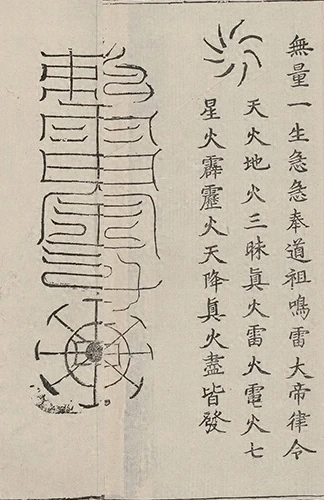 無量一生急急奉道祖鳴雷大帝律令
天火地火三昧眞火雷火電火七
星火霹靂火天降眞火盡皆發